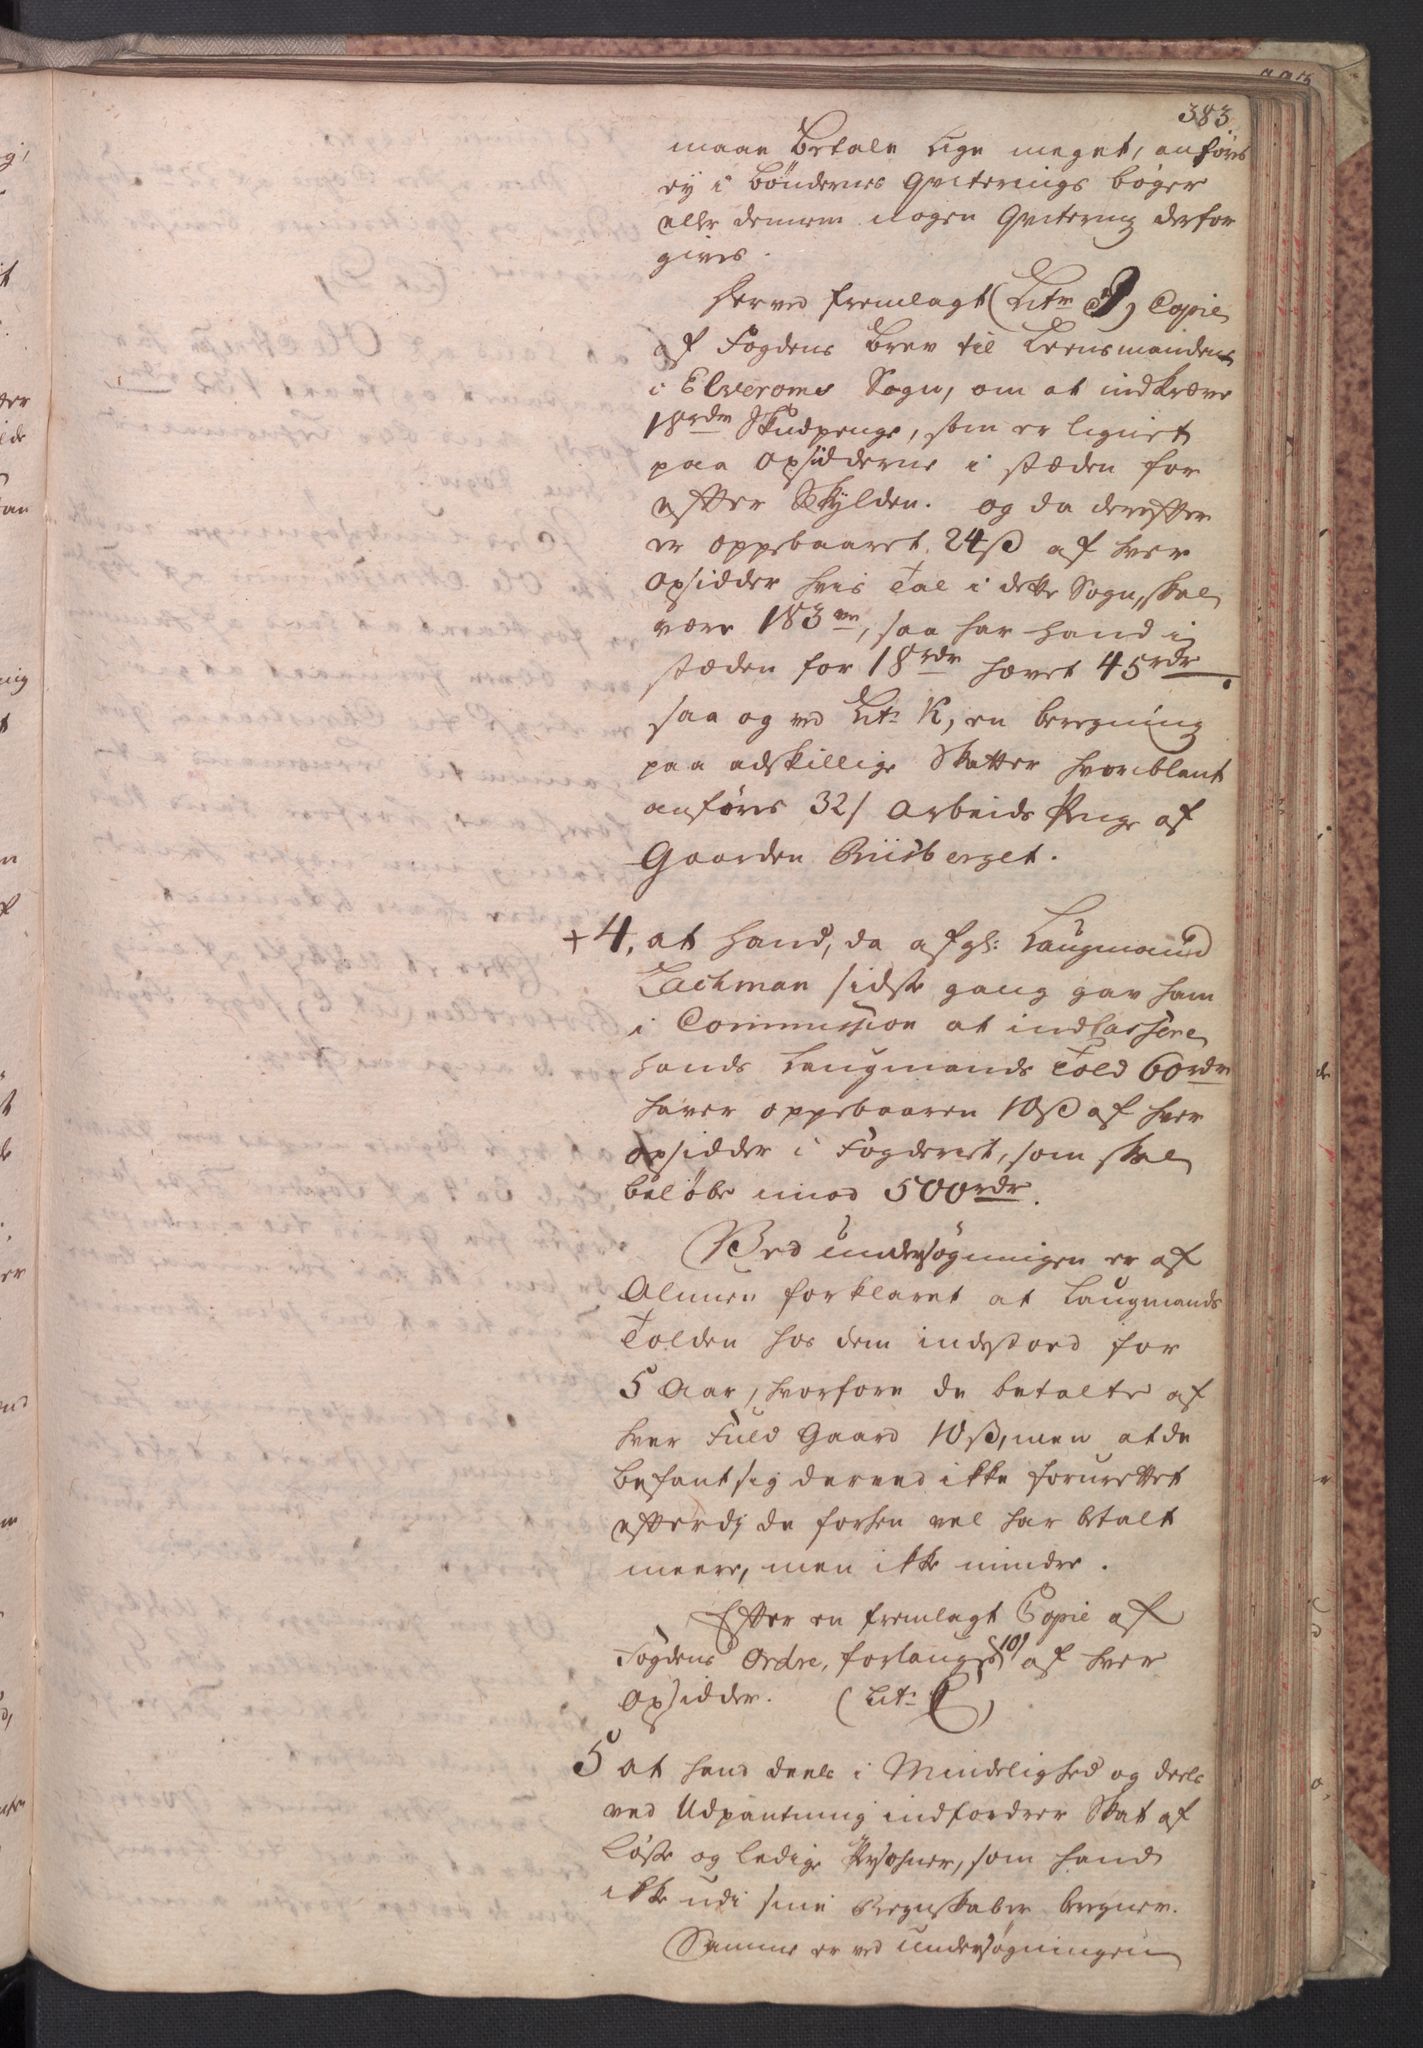 383
maae Betale lige meget, anføres
ey i Bøndernes Qviterings bøger
eller demem nogen Qvitering derfor
gives.
Herved fremlagt (Litr J) Copie
af Fogdens Brev til Leensmanden
i Elveroms Sogn, om at indkræve
18 rdr Skudpenge, som er lignet
paa opsidderne i stæden for
efter Skylden. og da derefter
er oppebaaret 24 ß af hver
opsidder hvis Tal i dette Sogn, skal
være 183 ve, saa har hand i
stæden for 18 rdr hævet 45 rdr.
saa og ved Litr K, en beregning
paa adskillige Skatter hvoriblant
anføres 32 / Arbeids Penge af
Gaarden Riisberget.
+ 4, at hand, da afgl: Laugmand
Lachman sidste gang gav ham
i Commission at indcassere
hands Laugmands Told 60 rdr
haver oppebaaren 10 ß af hver
opsidder i Fogderiet, som skal
beløbe imod 500 rdr.
Ved undersøgningen er af
Almuen forklaret at Laugmands
Tolden hos dem indestoed for
5 Aar, hvorfore de betalte af
hver Fuld Gaard 10 ß, men at de
befant sig derved ikke forurettet
efterdj de forhen vel har betalt
meere, men ikke mindre.
Efter en fremlagt Copie af
Fogdens Ordre, forlanges 10 / af hver
opsidder. (Litr L)
5 at hand deels i Mindelighed og deels
ved Udpantning indfordrer Skat af
Løse og ledige Persohner, som hand
ikke udi sine Regnskaber beregner.
Samme er ved undersøgningen